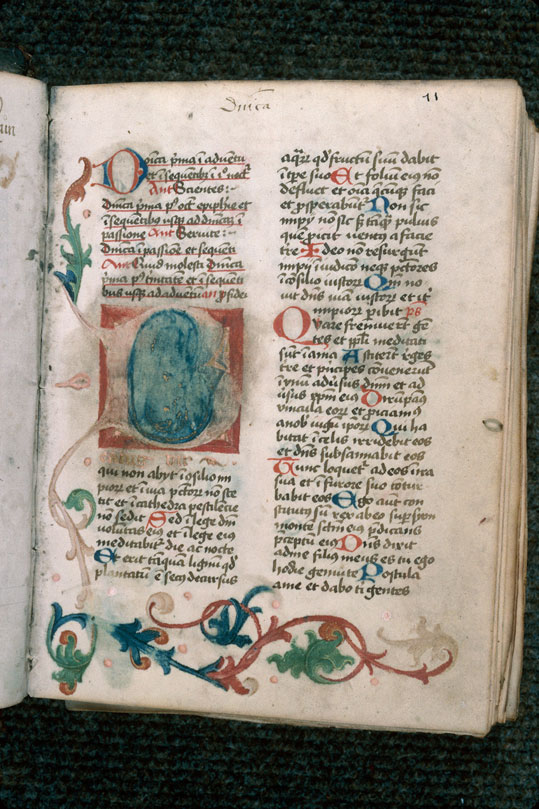 Dnica
11
Dnica pma i adventu
et i sequetibus i po noct
Ant Scientes
Dnica pma p oct epiphie et
i sequetibus usq ad dnica i
passione Ant Servite
Dnica i passione et sequeti
Ant Quid molesti Dnica
pma p trinitate et i sequeti
bus usq ad adventu an psidei
qui non abyt i cosilio im
pior et i via pctor no ste
tit et i cathedra pestilecie
no sedit Sed i lege dni
volutas eius et i lege eius
meditabit die ac nocte
Et erit taqua lignu qd
plantatu e secq decursus
aqar qd fructum suu dabit
i tpe suo Et foliu eius no
defluet et oia quecuq faci
et psperabut Non sic
impy no sic sz taq pulvis
que picit ventus a facie
tre Ideo no resurgut
impy i iudicio neq pctores
i cosilio iustor Qm no
vit dns via iustor et it
impior peribit ps
Quare fremuerut ge
tes et ppli meditati
sut iania Astiterut reges
tre et pncipes covenerut
i unu adusus dnm et ad
usus xpm eius Dirupaus
vincula eor et piciamus
a nob iugu ipor Qui ha
bitat i celis irridebit eos
et dns subsannabit eos
Tunc loquet ad eos i ira
sua et i furore suo cotur
babit eos Ego aut con
stitutus su rex ab eo super syon
monte sctm eius pdicans
pceptu eius Dns dixit
ad me filius meus es tu ego
hodie genui te Postula
a me et dabo ti gentes